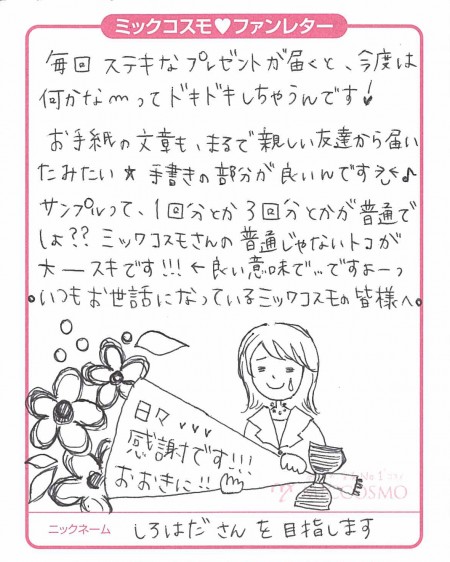 ミックコスモ♥ファンレター
毎回 ステキな プレゼントが届くと、今度は
何かなmってドキドキしちゃうんです!
お手紙の文章も、まるで親しい友達から届い
たみたい★ 手書きの部分が良いんですって♪
サンプルって、1回分とか3回分とかが普通で
しょ?? ミックコスモさんの普通じゃないトコが
大―スキです!!! ←良い意味で…ですよーっ
いつもお世話になっているミックコスモの皆様へ
日々
感謝です!!!
おおきに!!
No.1
COSMO
ニックネーム しろはださんを目指します